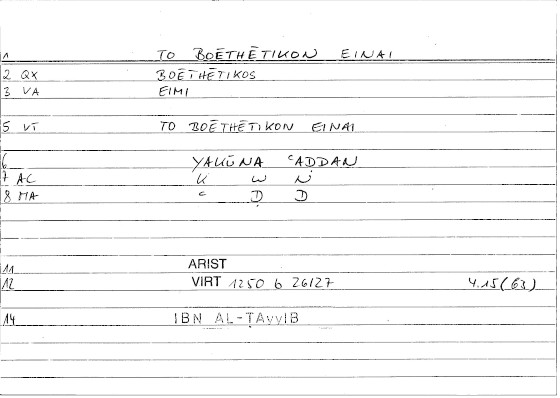 1 TO BOĒTHĒTIKON EINAI
2 QX BOĒTHĒTIKOS
3 VA EIMI
5 VT TO BOĒTHĒTIKON EINAI
6 YAKŪNA ʿADDAN
7 AC K W N
8 MA ʿ Ḍ D
11 ARIST
12 VIRT 1250 b 26/27 4.15(63)
14 IBN AL-ṬAyyIB